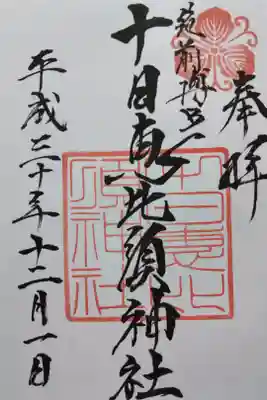 奉拝
筑前博多
十日恵比須神社
平成三十年十二月一日
十日恵比須神社